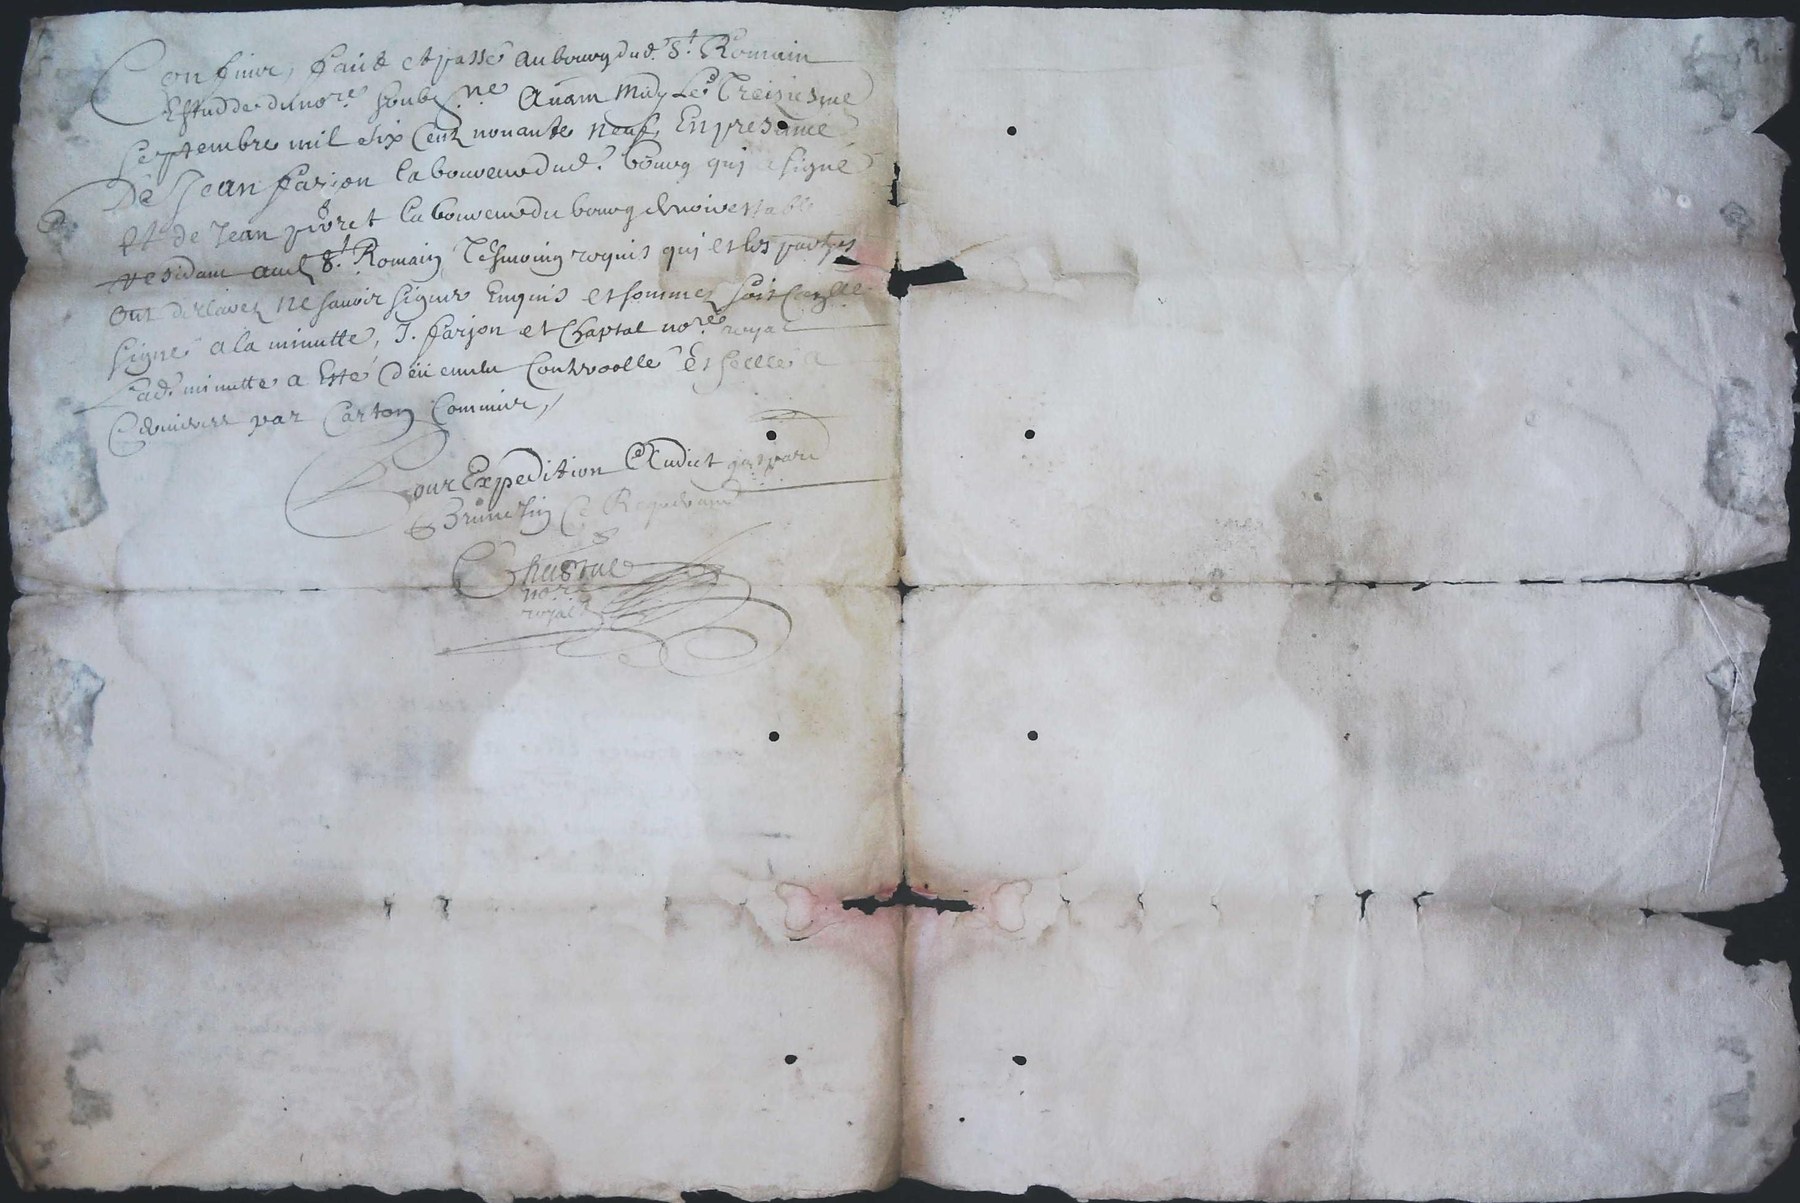 Confiner, faict et passé au bourg dud.t S.t Romain
Estudde du no.re soubz.ne avam midy Le Treiziesme
septembre mil six cent nonante neuf, En presance
De Jean farjon laboureur dud.t bourg qui a signé
et de Jean laboureur du bourg de noirestable
residant aud S.t Romain Tesmoing requis qui et les partyes
ont declarez ne savoir signer Enquis et sommez
signé a la minutte, J. farjon et Chaptal no.re royal
Lad.e minutte a Esté Controollé et scellé a
Cervieres par Carton Commis,
Pour Expedition Audict gaspard
Brunelin Ce Requerant
Chaptal
no.re
royal